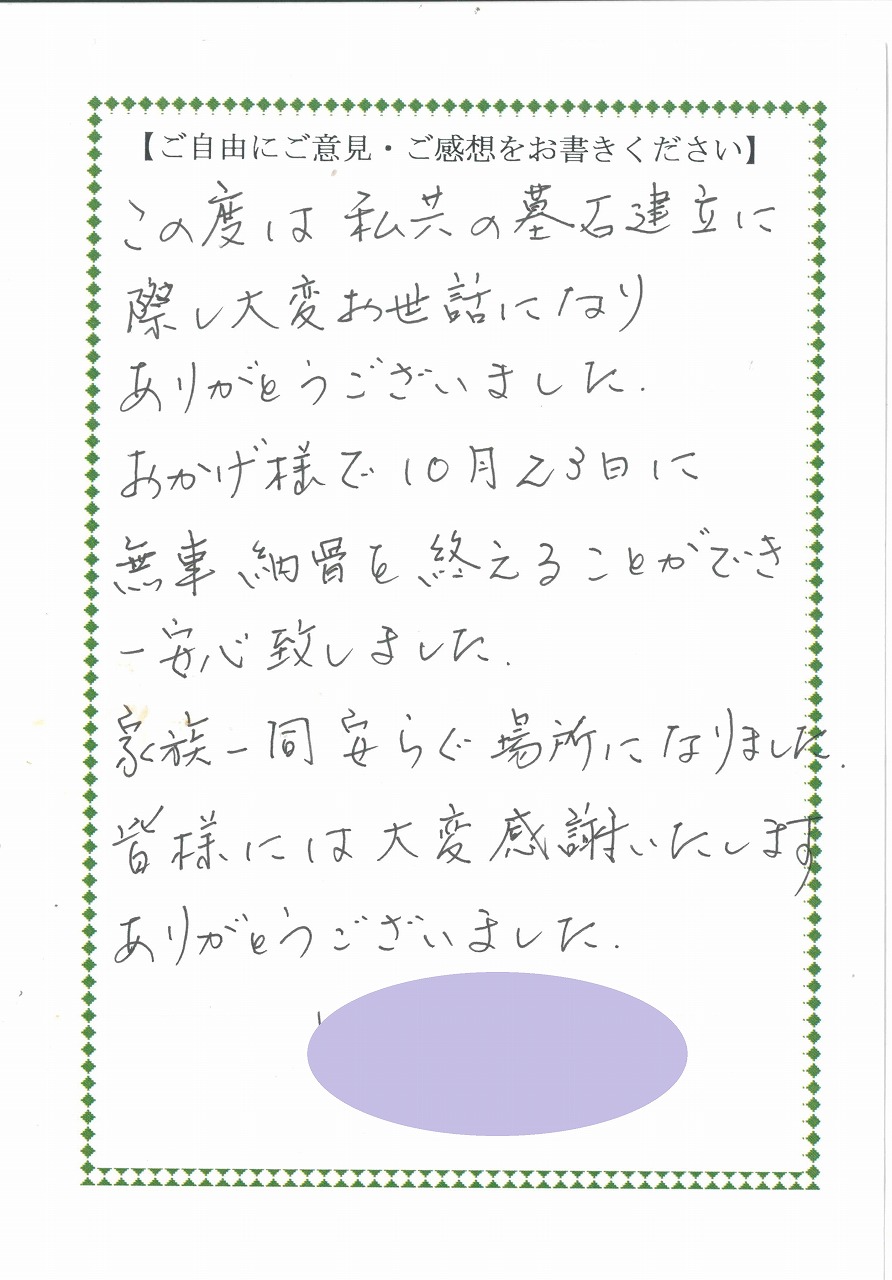 【ご自由にご意見・ご感想をお書きください】
この度は私共の墓石建立に
際し大変お世話になり
ありがとうございました.
おかげ様で10月23日に
無事納骨を終えることができ
一安心致しました.
家族一同安らぐ場所になりました.
皆様には大変感謝いたします
ありがとうございました.